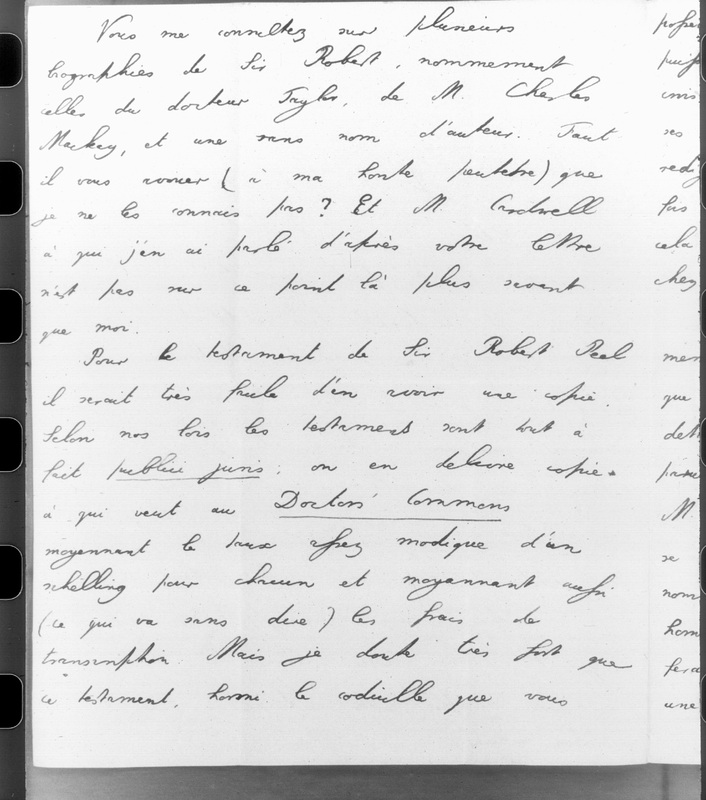 Vous me consultez sur plusieurs
biographies de Sir Robert, nommement
celles du docteur Taylor, de M. Charles
Mackey, et une sans nom d'auteur. Faut
il vous avouer (à ma honte peutetre) que
je ne les connais pas? Et M. Cardwell
à qui j'en ai parlé d'après votre lettre
n'est pas sur ce point là plus savant
que moi.
Pour le testament de Sir Robert Peel
il serait très facile d'en avoir une copie.
Selon nos lois les testaments sont tout à
fait publici juris; on en delivre copie
à qui veut au Doctors' Commons
moyennant le taux assez modique d'un
schelling pour chacun et moyennant aussi
(ce qui va sans dire) les frais de
transcription. Mais je doute très fort que
ce testament, hormi le codicille que vous
cela
chez
que
M.
se
une